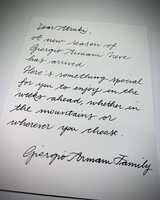 Dear Wendy,
A new season of
Giorgio Armani Neve
has arrived.
Here is something special
for you to enjoy in the
weeks ahead, whether in
the mountains or
wherever you choose.
Giorgio Armani Family